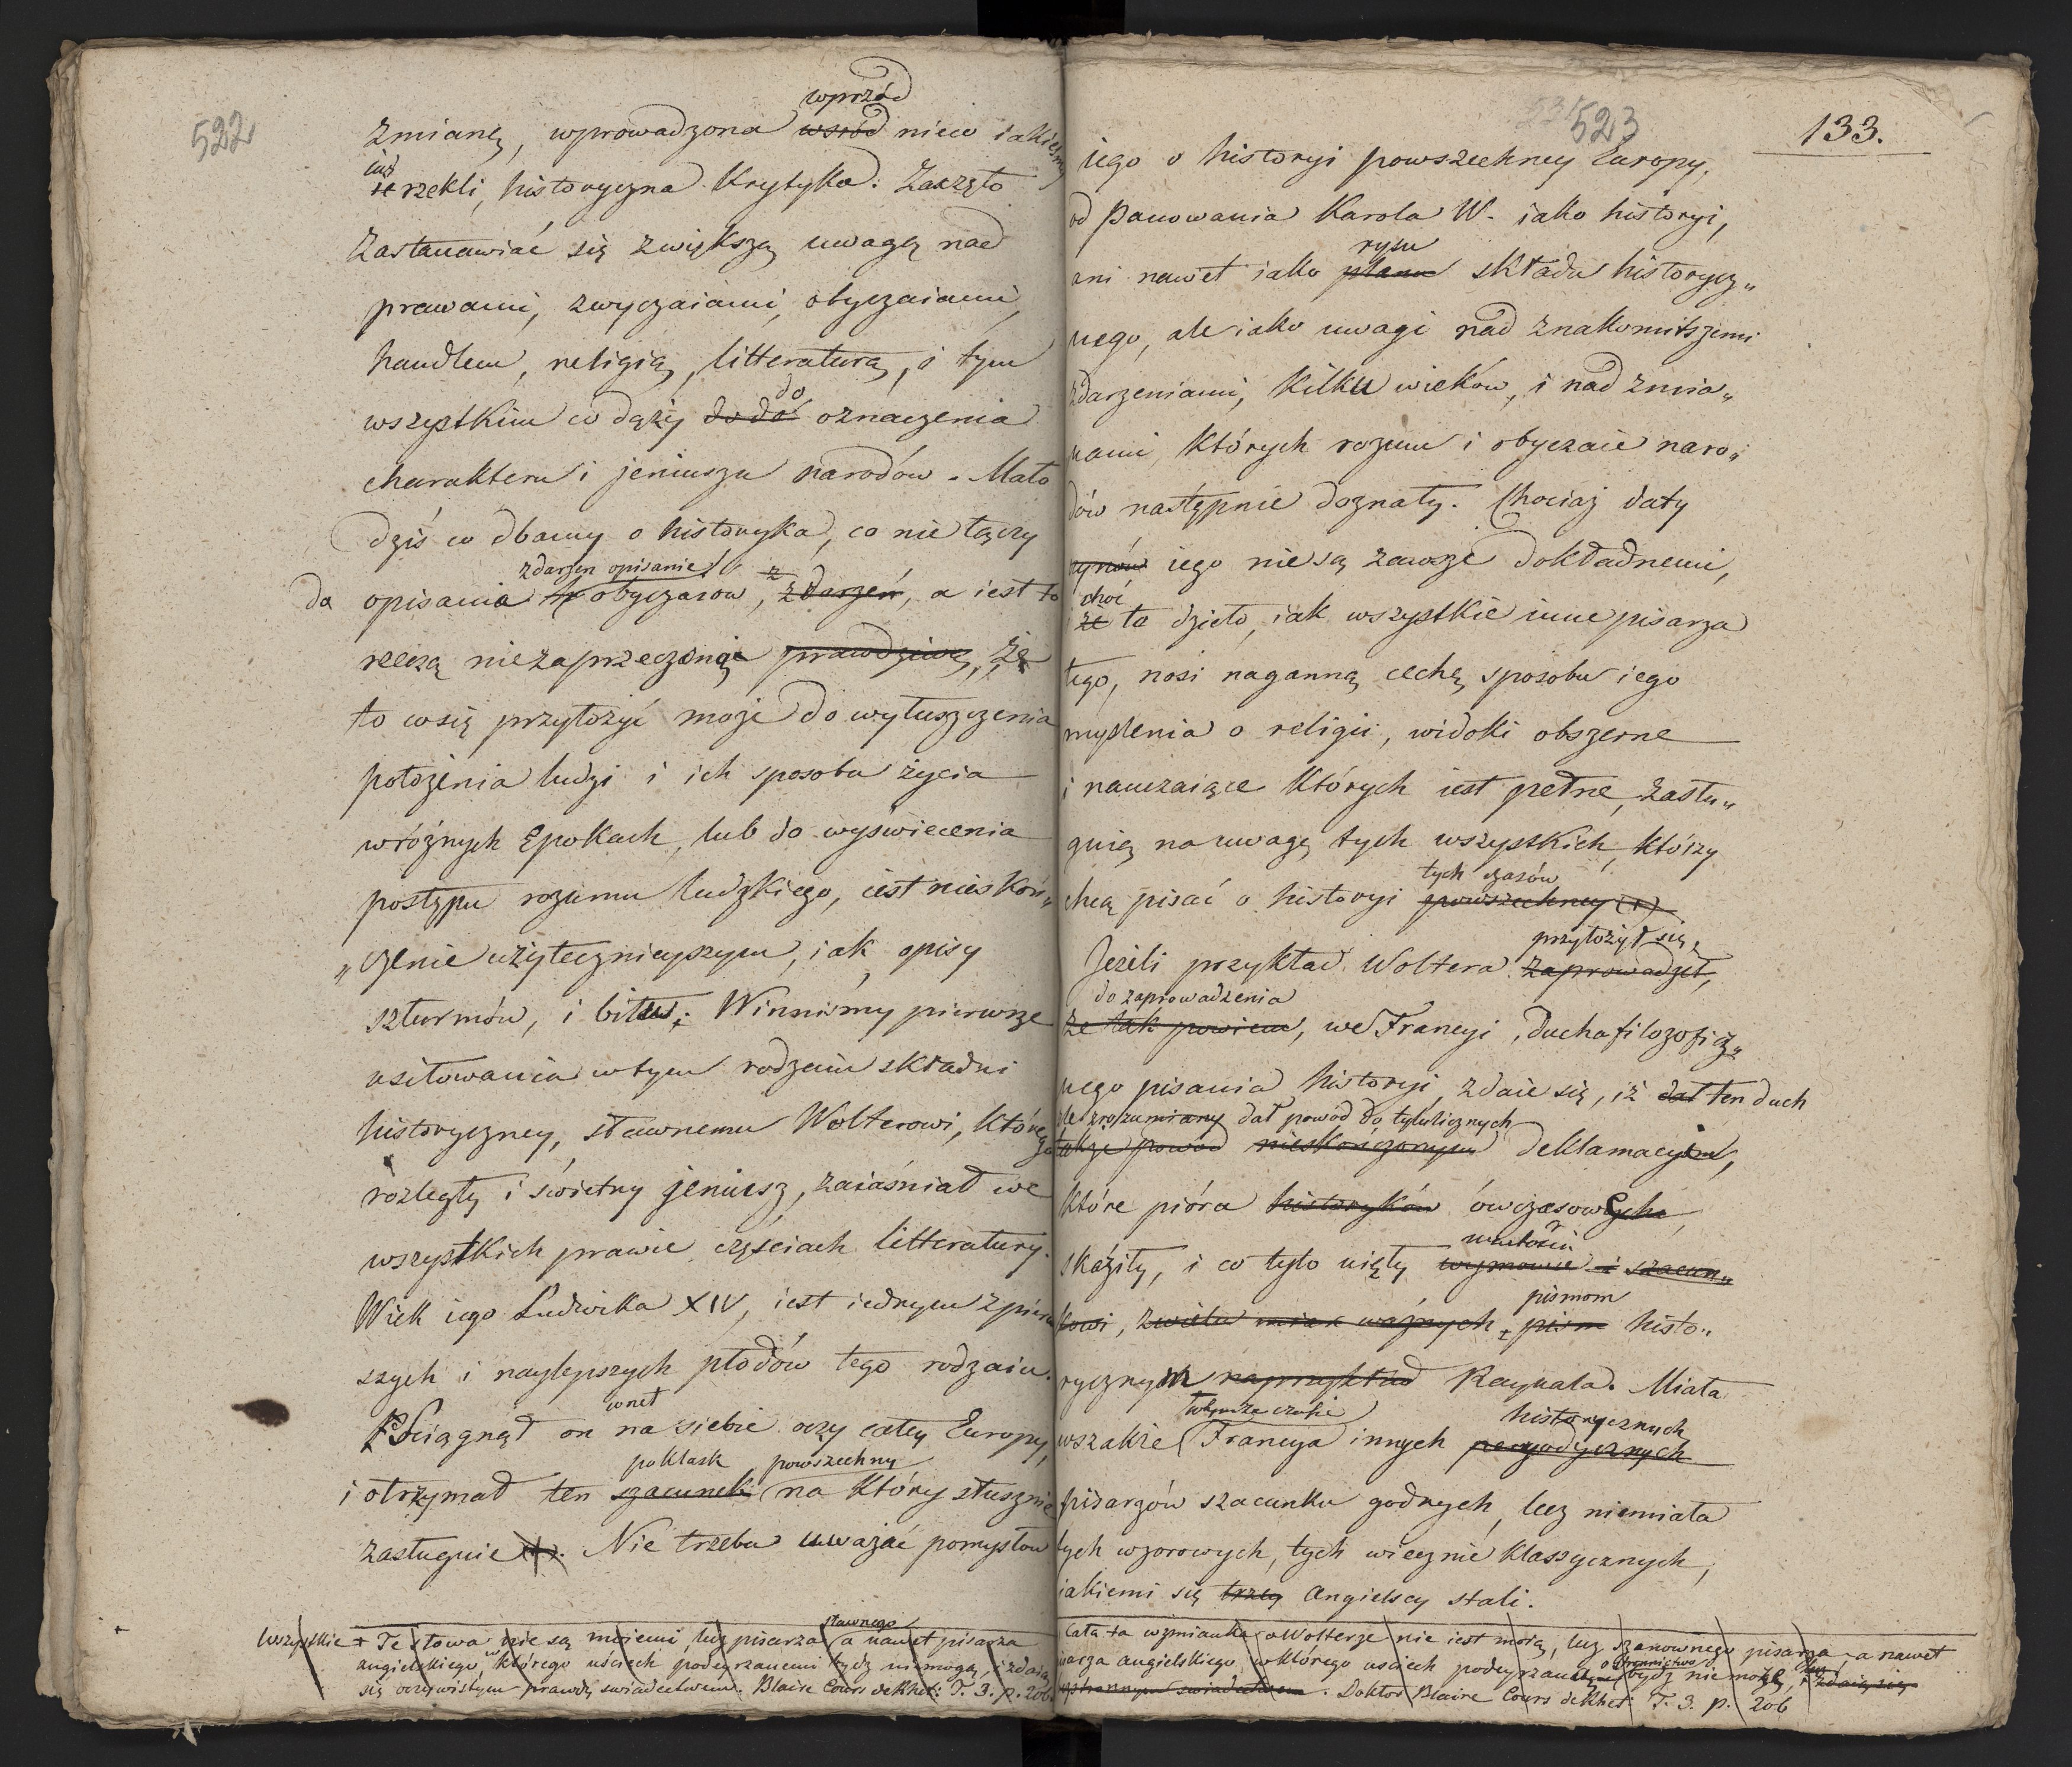 522
wprzód
zmianę, wprowadzona wsród niew iakieśmy
iuż
rzekli, historyczna Krytyka. Zaczęto
zastanawiać się z większą uwagą nad
prawami, zwyczaiami, obyczaiami,
handlem, religią, litteraturą, i tym
do
wszystkim co dąży do do oznaczenia
charakteru i jeniuszu narodów. Mało
dziś co dbamy o historyka, co nie łączy
zdarzeń opisanie
do opisania obyczaiow, z zdarzeń, a iest to
rzeczą niezaprzeczoną prawdziwą, że
to co się przyłożyć może do wyłuszczenia
położenia ludzi i ich sposobu życia
w różnych Epokach, lub do wyświecenia
postępu rozumu ludzkiego, iest nieskoń„
„czenie użytecznieyszym, iak opisy
szturmów, i bitew. Winniśmy pierwsze
usiłowania w tym rodzaiu składni
historyczney, sławnemu Wolterowi, którego
rozległy i świetny jeniusz, zaiaśniał we
wszystkich prawie częściach litteratury.
Wiek iego Ludwika XIV, iest iednym z pierw
szych i naylepszych płodów tego rodzaiu.
wnet
Ściągnął on na siebie oczy całey Europy,
poklask powszechny
i otrzymał ten szacunek na który słusznie
zasługuie (+). Nie trzeba uważać pomysłow
sławnego
Wszystkie + Te słowa nie są moiemi lecz pisarza a nawet pisarza
angielskiego, w którego uściech podeyrzanemi bydź niemogą, i zdaią
się oczywistym prawdy swiadectwem. Blaire Cours de Rhet: T. 3. p. 206.
523
133.
iego o historyi powszechney Europy,
od panowania Karola W. iako historyi,
rysu
ani nawet iako planu składu historycz„
nego, ale iako uwagi nad znakomitszemi
zdarzeniami, kilku wieków, i nad zmia„
nami, których rozum i obyczaie naro„
dów następnie doznały. Chociaż daty
iego nie są zawsze dokładnemi,
choć
że to dzieło, iak wszystkie inne pisarza
tego, nosi naganną cechę sposobu iego
myslenia o religii, widoki obszerne
i nauczaiące których iest pełne, zasłu„
guią na uwagę tych wszystkich, którzy
tych czasów
chcą pisać o historyi powszechney (+)
przyłożył się,
Jeżeli przykład Woltera zaprowadził,
do zaprowadzenia
że tak powiem, we Francyi, ducha filozoficz„
nego pisania historyi, zdaie się, iż dał ten duch
źle zrozumiany dał powód do tylulicznych
także powód nieskończonym deklamacyi,
które pióra historyków ówczasowych
skaziły, i co tyło uięły wymowie i szacun„
pismom
kowi, zwielu miar ważnych pism histo„
rycznym naprzykład Raynala. Miała
wszakże Francya innych peryodycznych
historycznych
pisarzów szacunku godnych, lecz niemiała
tych wzorowych, tych wiecznie klassycznych,
iakiemi się trzey angielscy stali.
Cała ta wzmianka o Wolterze nie iest moią, lecz szanownego pisarza, a nawet
pisarza angielskiego, w którego uściech podeyrzaną o stronnictwo bydź nie może,
. Doktor Blaire Cours de Rhet: T. 3. p. 206